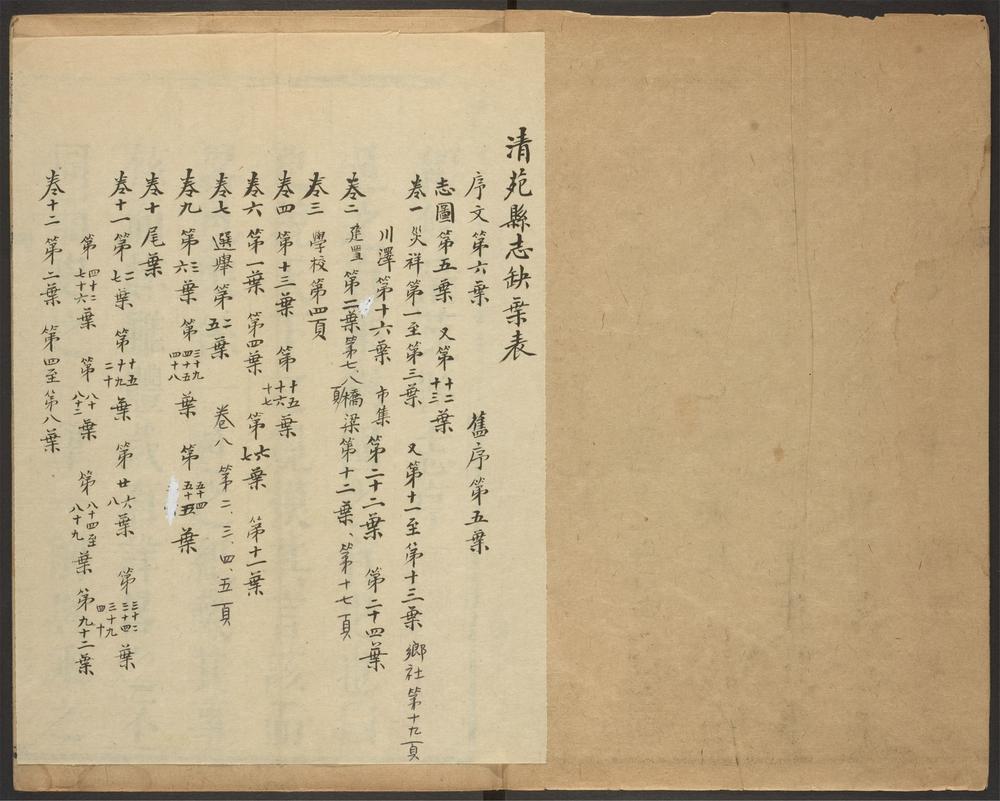 清苑縣志缺葉表
序文 第六葉 舊序 第五葉
志圖 第五葉 又第十二十三葉
卷一 災祥 第一至第三葉 又第十一至第十三葉 鄉社 第十九頁
川澤 第十六葉 市集 第二十二葉 第二十四葉
卷二 建置 第二葉 第七、八頁 橋梁 第十二葉、第十七頁
卷三 學校 第四頁
卷四 第十三葉 第十五十六十七葉
卷六 第一葉 第四葉 第六七葉 第十一葉
卷七 選舉 第二五葉 卷八 第二、三、四、五頁
卷九 第三六葉 第三十九四十五四十八葉 第五十四五十五葉
卷十 尾葉
卷十一 第二七葉 第十五十九二十葉 第廿六八葉 第三十二三十四三十九四十葉
第四十二七十六葉 第八十八十二葉 第八十四至八十九葉 第九十二葉
卷十二 第二葉 第四至第八葉